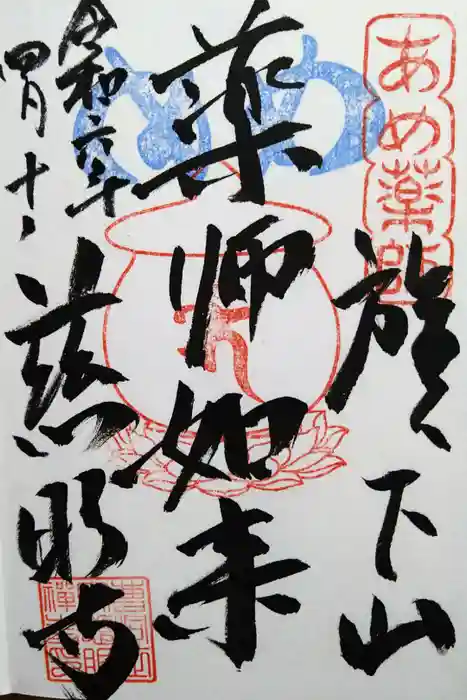 あめ薬師
於下山
薬師如来
令和六年
四月十日
慈明寺